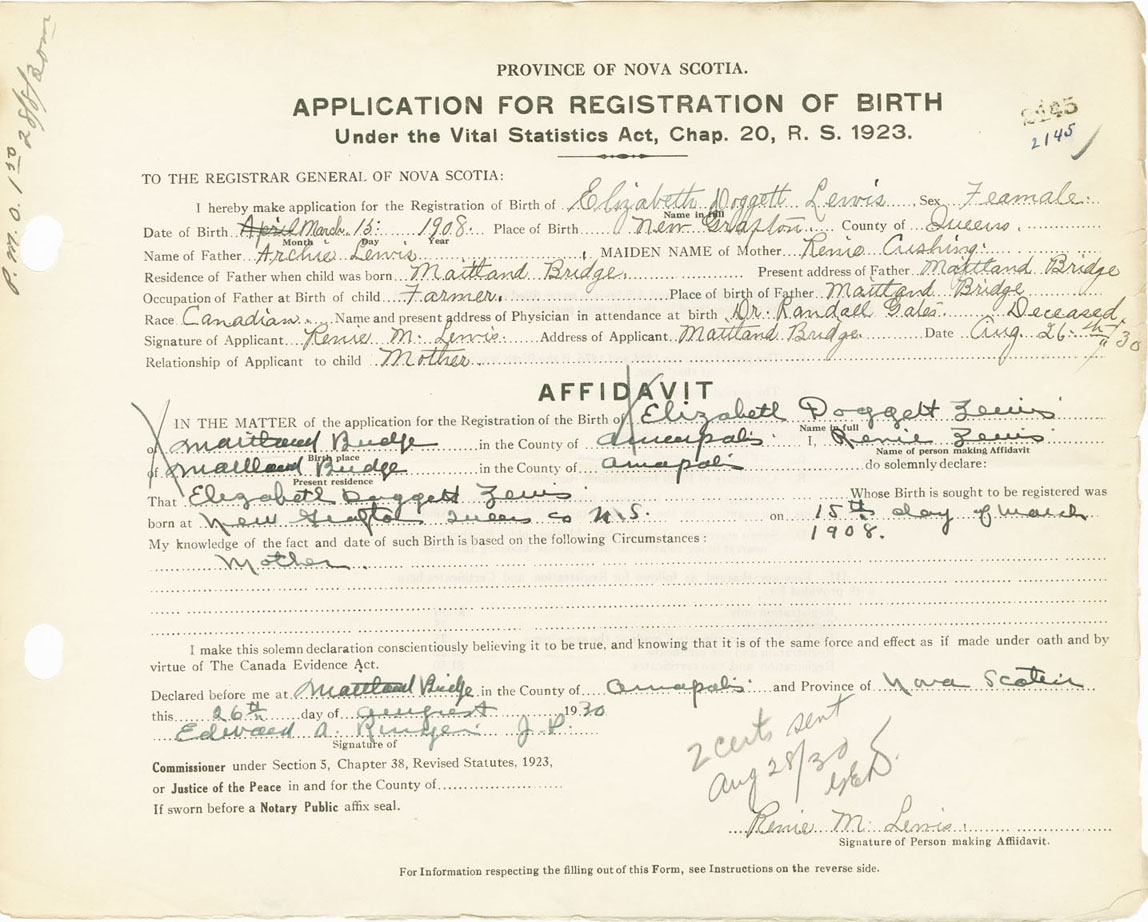 P.M.O. 1 50 28/8/30 m
PROVINCE OF NOVA SCOTIA.
APPLICATION FOR REGISTRATION OF BIRTH
2145
Under the Vital Statistics Act, Chap. 20, R. S. 1923.
2145
TO THE REGISTRAR GENERAL OF NOVA SCOTIA:
I hereby make application for the Registration of Birth of Elizabeth Doggett Lewis Sex Feamale.
Name in full
Date of Birth April March 15: 1908. Place of Birth New Grafton. County of Queens.
Month Day Year
Name of Father Archie Lewis MAIDEN NAME of Mother Renie Cushing.
Residence of Father when child was born Maitland Bridge. Present address of Father Maitland Bridge
Occupation of Father at Birth of child Farmer. Place of birth of Father Maitland Bridge
Race Canadian. Name and present address of Physician in attendance at birth Dr. Randall Gates. Deceased.
Signature of Applicant Renie M. Lewis. Address of Applicant Maitland Bridge Date Aug. 26th " 30
Relationship of Applicant to child Mother
AFFIDAVIT
IN THE MATTER of the application for the Registration of the Birth of Elizabeth Doggett Lewis
Name in full
of Maitland Bridge in the County of Annapolis. I, Renie Lewis
Birth place Name of person making Affidavit
of Maitland Bridge in the County of Annapolis do solemnly declare:
Present residence
That Elizabeth Doggett Lewis Whose Birth is sought to be registered was
born at New Grafton Queens Co N.S. on 15th day of March
1908.
My knowledge of the fact and date of such Birth is based on the following Circumstances:
Mother.
I make this solemn declaration conscientiously believing it to be true, and knowing that it is of the same force and effect as if made under oath and by
virtue of The Canada Evidence Act.
Declared before me at Maitland Bridge in the County of Annapolis and Province of Nova Scotia
this 26th day of August 1930
Edward A. J.P.
Signature of
2 certs sent
Aug 28/30
Commissioner under Section 5, Chapter 38, Revised Statutes, 1923,
or Justice of the Peace in and for the County of
If sworn before a Notary Public affix seal.
Renie M. Lewis.
Signature of Person making Affidavit.
For Information respecting the filling out of this Form, see Instructions on the reverse side.